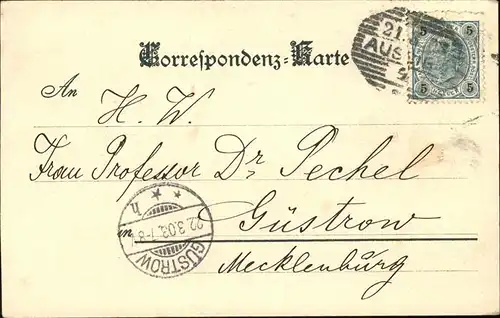 Correspondenz-Karte
21.
AUS
5 5
5 5
An
H. W.
Frau Professor Dr Pechel
in Güstrow
Mecklenburg
GÜSTROW
22.3.03. 7-8